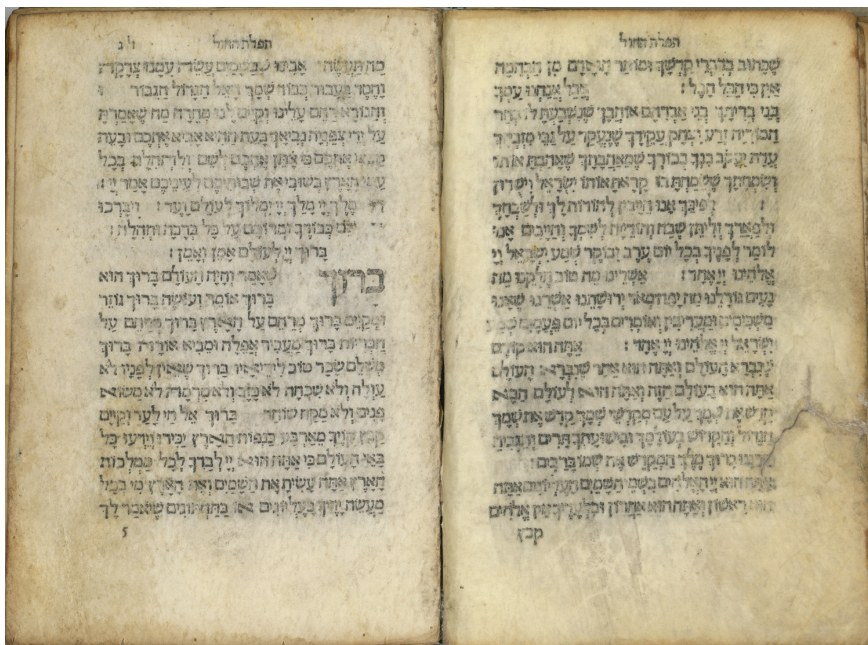 תפלת החול
שכתוב בדברי קדשך ומותר האדם מן הבהמה
אין כי הכל הבל : אבל אנחנו עמך
בני בריתך בני אברהם אוהבך שנשבעת לו בהר
המוריה זרע יצחק עקידך שנעקד על גבי מזבחך
עדת יעקב בנך בכורך שמאהבתך שאהבת אותו
ומשמחתך ששמחת בו קראת אותו ישראל וישרון
: לפיכך אנו חייבין להודות לך ולשבחך
ולפארך וליתן שבח והודייה לשמך וחייבים אנו
לומר לפניך בכל יום ערב ובוקר שמע ישראל יי
אלהינו יי אחד : אשרינו מה טוב חלקנו מה
נעים גורלנו מה יפה מאד ירושתנו אשרנו שאנו
משכימים ומעריבין ואומרים בכל יום פעמים שמע
ישראל יי אלהינו יי אחד : אתה הוא קודם
שנברא העולם ואתה הוא אחר שנברא העולם
אתה הוא בעולם הזה ואתה הוא לעולם הבא
קדש את שמך על עם מקדשי שמך קדש את שמך
הגדול והקדוש בעולמך ובישועתך תרים ותגביה
קרננו ברוך מלך המקדש את שמו ברבים :
אתה הוא יי האלהים בשמי השמים העליונים אתה
הוא ראשון ואתה הוא אחרון ומבלעדיך אין אלהים
קבץ
תפלת החול ג
כח תעשה אבינו שבשמים עשה עמנו צדקה
וחסד בעבור כבוד שמך האל הגדול הגבור
והנורא רחם עלינו וקיים לנו מהרה מה שאמרת
על ידי צפניה נביאך בעת ההיא אביא אתכם ובעת
קבצי אתכם כי אתן אתכם לשם ולתהלה בכל
עמי הארץ בשובי את שבותיכם לעיניכם אמר יי :
יי מלך יי מלך יי ימלוך לעולם ועד : ויברכו
שם כבודך ומרומם על כל ברכה ותהלה :
ברוך יי לעולם אמן ואמן :
ברוך שאמר והיה העולם ברוך הוא
ברוך אומר ועושה ברוך גוזר
ומקיים ברוך מרחם על הארץ ברוך מרחם על
הבריות ברוך מעביר אפלה ומביא אורה ברוך
משלם שכר טוב ליריאיו ברוך שאין לפניו לא
עולה ולא שכחה לא כזב ולא מרמה לא משוא
פנים ולא מקח שוחד ברוך אל חי לעד וקיים
קבץ קויך מארבע כנפות הארץ יכירו וידעו כל
באי העולם כי אתה הוא יי לבדך לכל ממלכות
הארץ אתה עשית את השמים ואת הארץ מי בכל
מעשה ידיך בעליונים או בתחתונים שיאמר לך